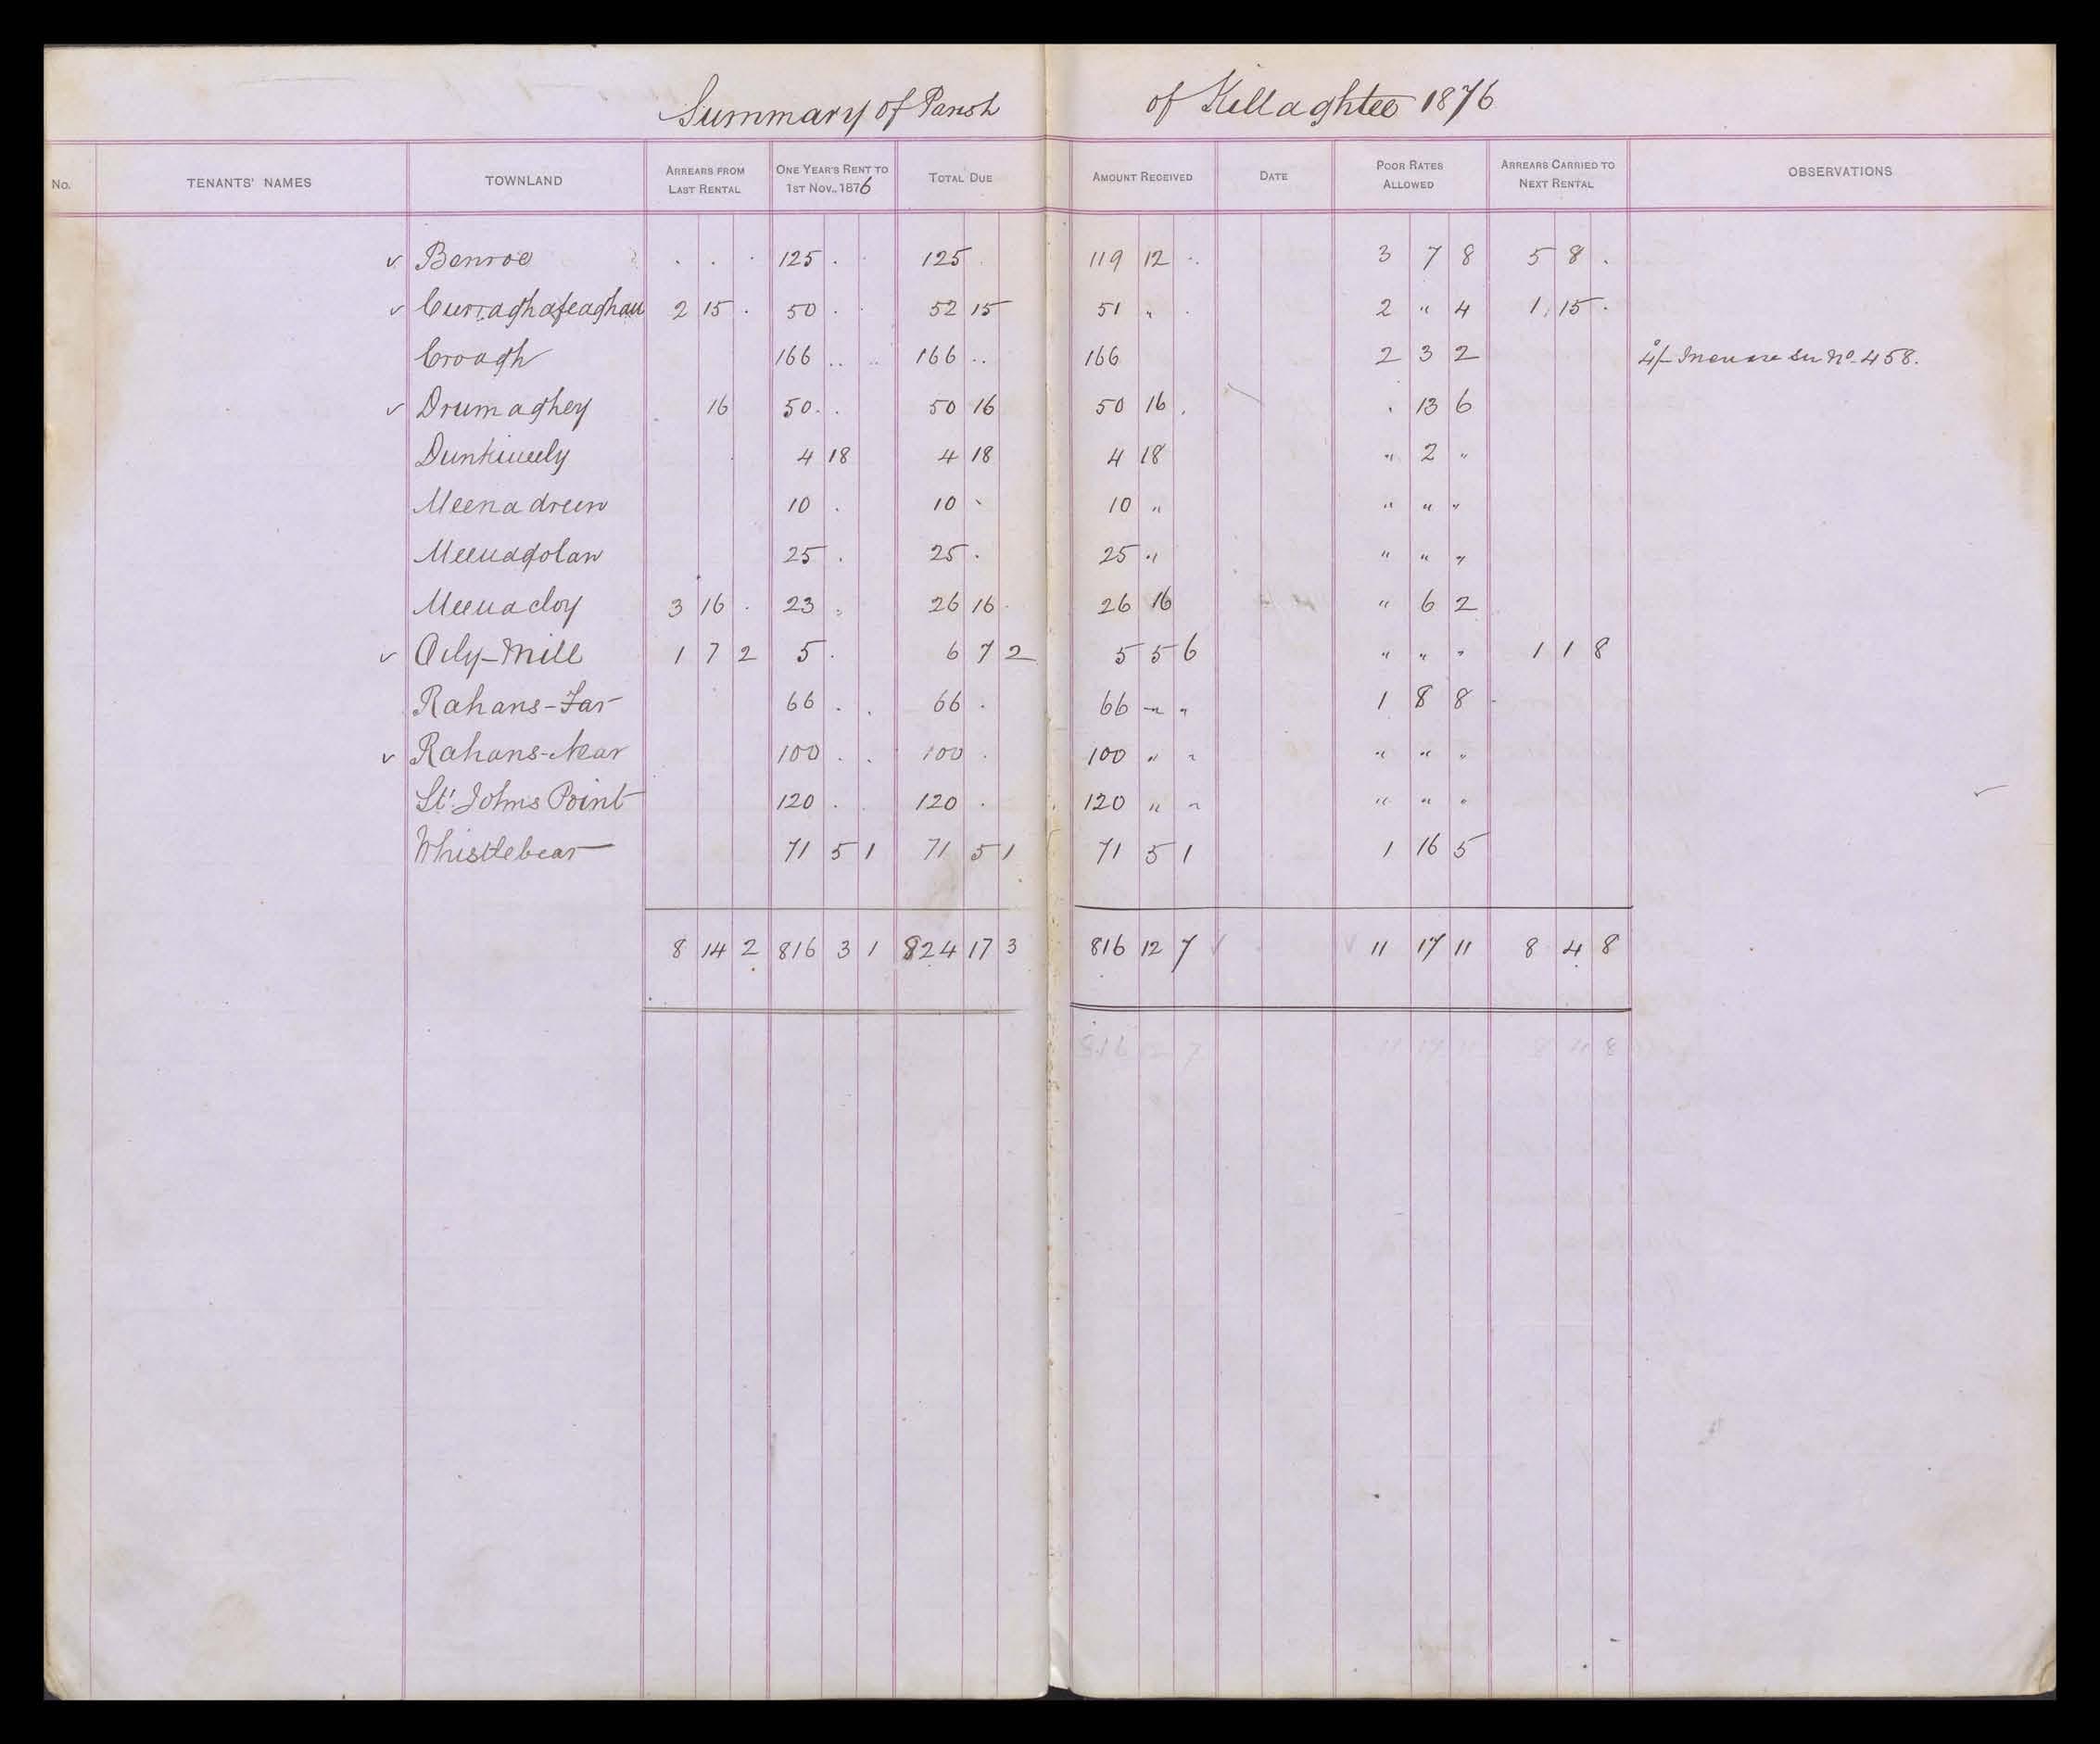 Summary of Parish of Killaghtee 1876
No. TENANTS' NAMES TOWNLAND ARREARS FROM LAST RENTAL ONE YEAR'S RENT TO 1ST NOV., 1876 TOTAL DUE AMOUNT RECEIVED DATE POOR RATES ALLOWED ARREARS CARRIED TO NEXT RENTAL OBSERVATIONS
✓ Benroe . . . 125 . . 125 . 119 12 . 3 7 8 5 8 .
✓ Curraghafeaghan 2 15 . 50 . . 52 15 51 " . 2 " 4 1 15 .
Croagh 166 .. .. 166 .. 166 2 3 2 4/- Increase See No. 458.
✓ Drumaghey 16 50 . . 50 16 50 16 . . 13 6
Dunkineely 4 18 4 18 4 18 " 2 "
Meenadreen 10 . 10 . 10 " " " "
Meenagolan 25 . 25 . 25 " " " "
Meenacloy 3 16 . 23 . 26 16 . 26 16 " 6 2
✓ Oily-Mill 1 7 2 5 . 6 7 2 5 5 6 " " " 1 1 8
Rahans-Far 66 . . 66 . 66 " " 1 8 8
✓ Rahans-Near 100 . . 100 . 100 " " " " "
St. Johns Point 120 . . 120 . 120 " " " " "
Whistlebear 71 5 1 71 5 1 71 5 1 1 16 5
8 14 2 816 3 1 824 17 3 816 12 7 ✓ ✓ 11 17 11 8 4 8
816 12 7 11 17 11 8 4 8